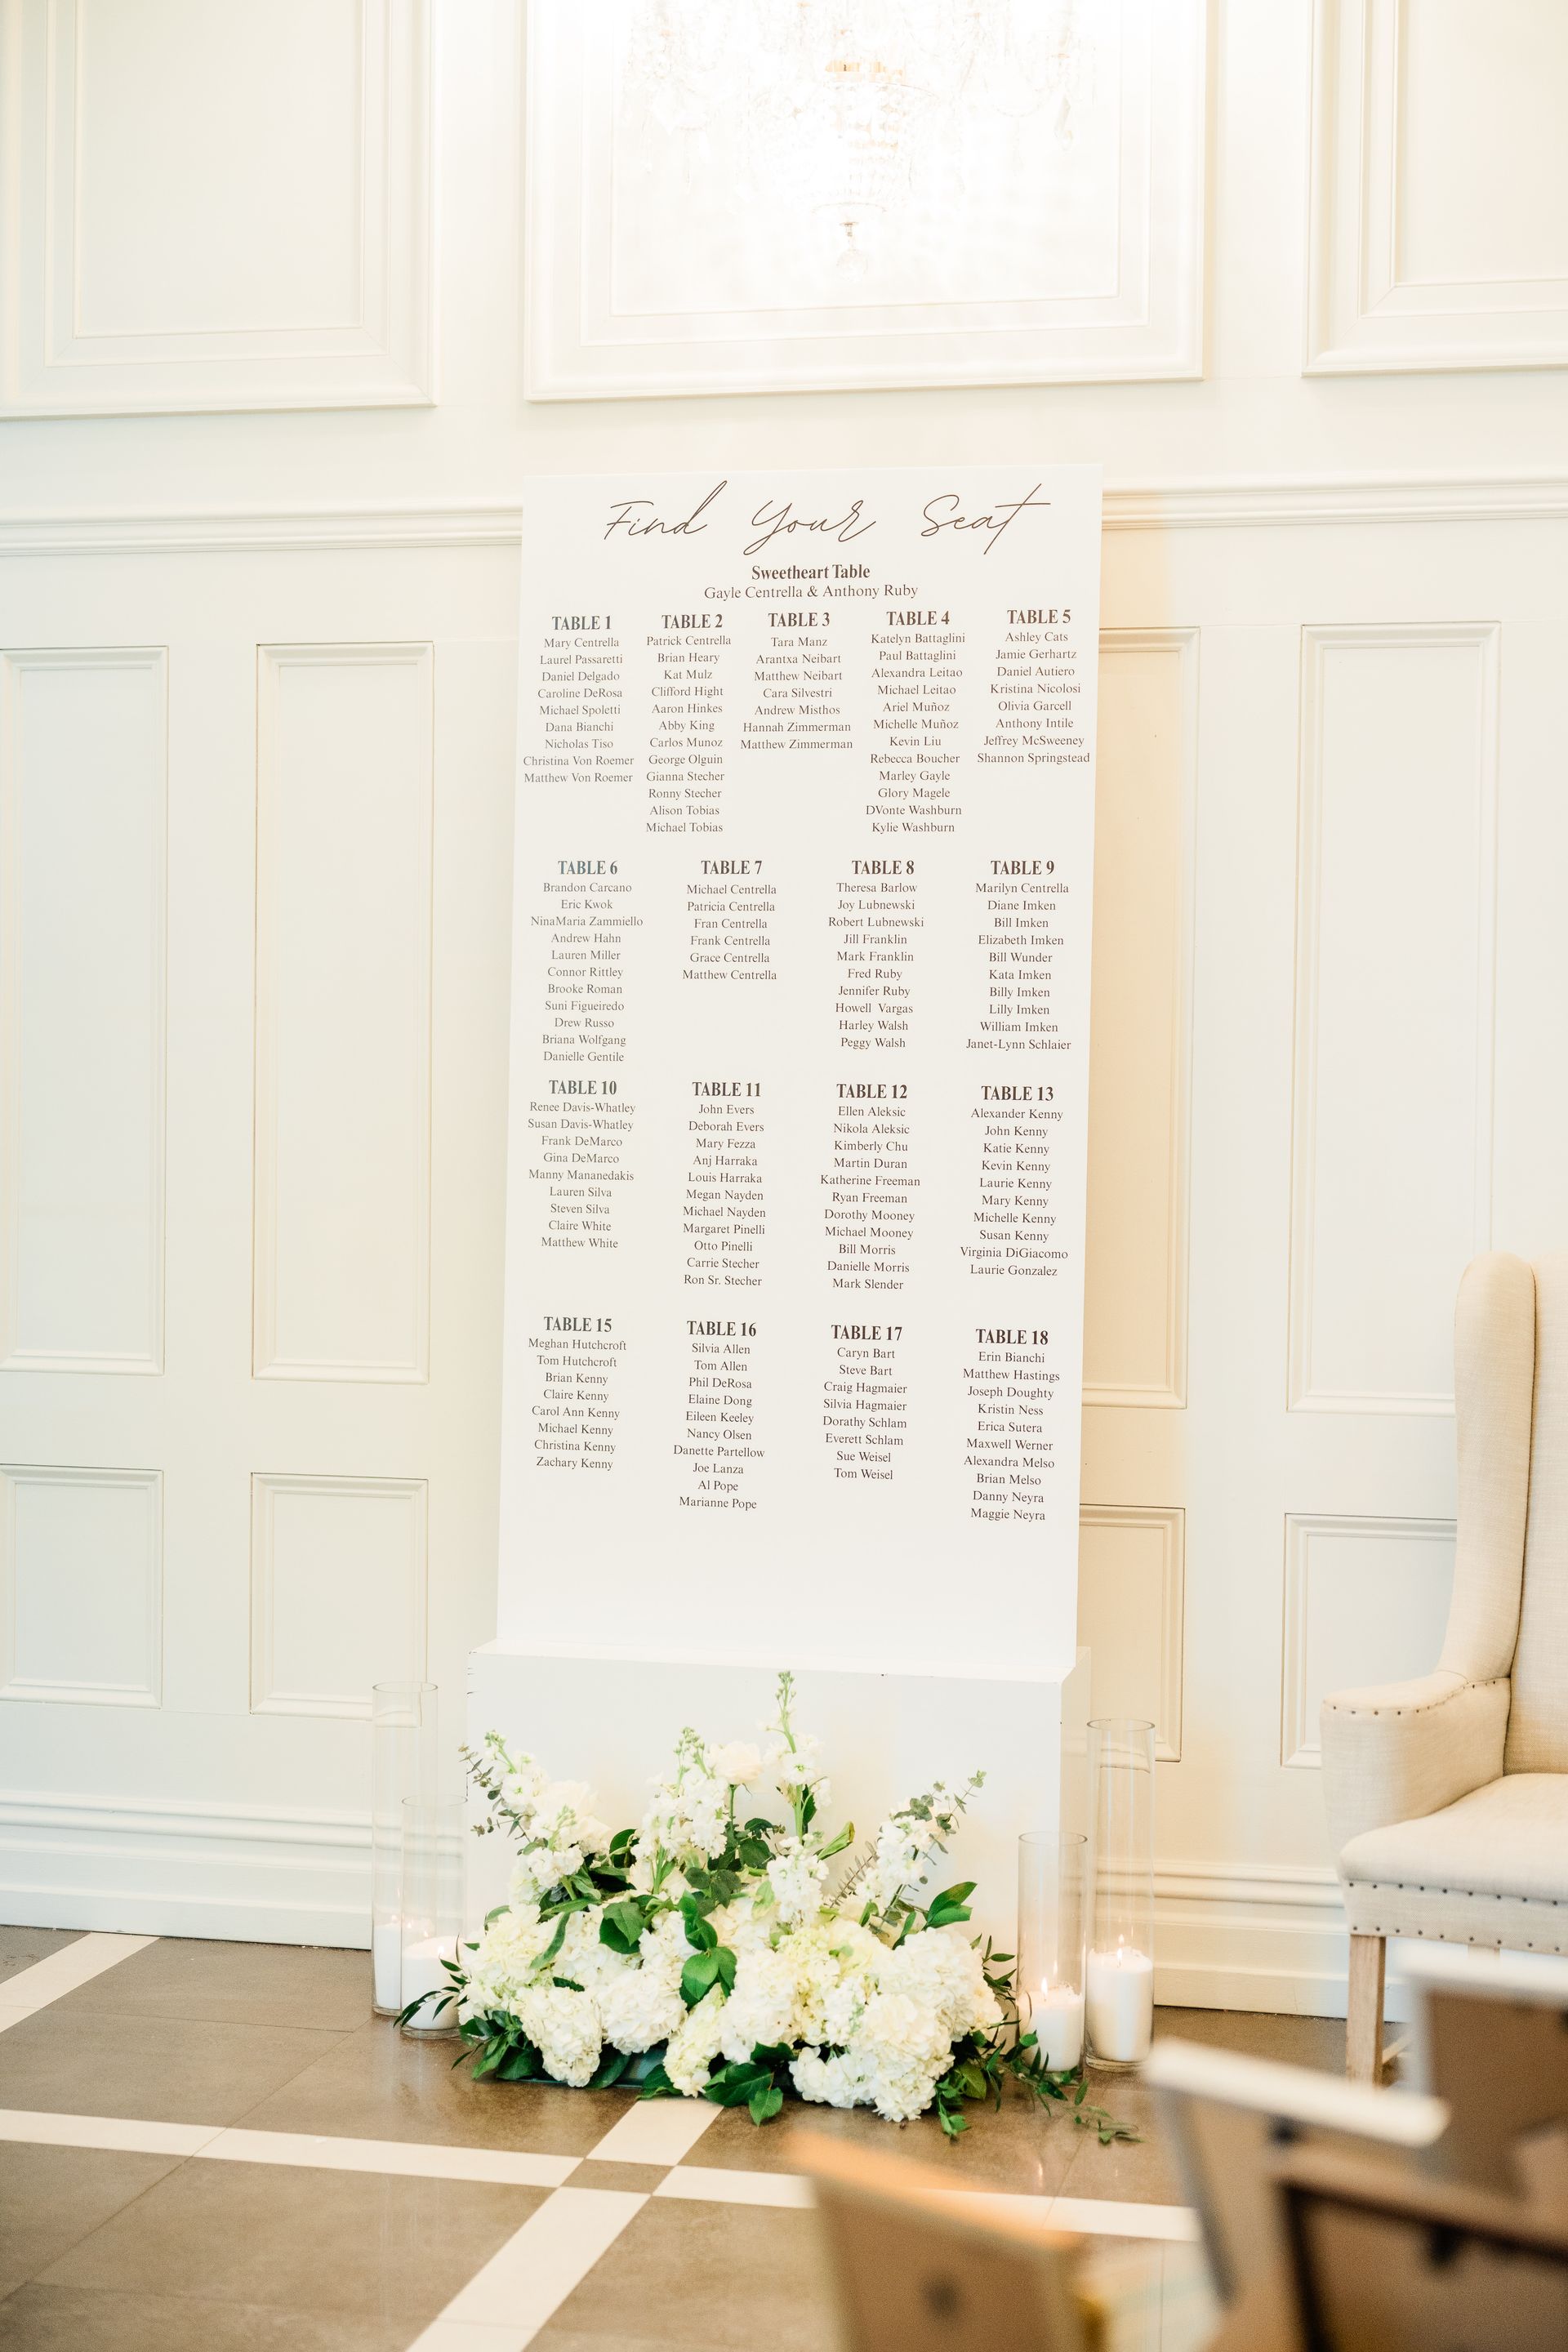 Find Your Seat
Sweetheart Table
Gayle Centrella & Anthony Ruby
TABLE 1
Mary Centrella
Laurel Passaretti
Daniel Delgado
Caroline DeRosa
Michael Spoletti
Dana Bianchi
Nicholas Tiso
Christina Von Roemer
Matthew Von Roemer
TABLE 2
Patrick Centrella
Brian Heary
Kat Mulz
Clifford Hight
Aaron Hinkes
Abby King
Carlos Munoz
George Olguin
Gianna Stecher
Ronny Stecher
Alison Tobias
Michael Tobias
TABLE 3
Tara Manz
Arantxa Neibart
Matthew Neibart
Cara Silvestri
Andrew Misthos
Hannah Zimmerman
Matthew Zimmerman
TABLE 4
Katelyn Battaglini
Paul Battaglini
Alexandra Leitao
Michael Leitao
Ariel Muñoz
Michelle Muñoz
Kevin Liu
Rebecca Boucher
Marley Gayle
Glory Magele
DVonte Washburn
Kylie Washburn
TABLE 5
Ashley Cats
Jamie Gerhartz
Daniel Autiero
Kristina Nicolosi
Olivia Garcell
Anthony Intile
Jeffrey McSweeney
Shannon Springstead
TABLE 6
Brandon Carcano
Eric Kwok
NinaMaria Zammiello
Andrew Hahn
Lauren Miller
Connor Rittley
Brooke Roman
Suni Figueiredo
Drew Russo
Briana Wolfgang
Danielle Gentile
TABLE 7
Michael Centrella
Patricia Centrella
Fran Centrella
Frank Centrella
Grace Centrella
Matthew Centrella
TABLE 8
Theresa Barlow
Joy Lubnewski
Robert Lubnewski
Jill Franklin
Mark Franklin
Fred Ruby
Jennifer Ruby
Howell Vargas
Harley Walsh
Peggy Walsh
TABLE 9
Marilyn Centrella
Diane Imken
Bill Imken
Elizabeth Imken
Bill Wunder
Kata Imken
Billy Imken
Lilly Imken
William Imken
Janet-Lynn Schlaier
TABLE 10
Renee Davis-Whatley
Susan Davis-Whatley
Frank DeMarco
Gina DeMarco
Manny Mananedakis
Lauren Silva
Steven Silva
Claire White
Matthew White
TABLE 11
John Evers
Deborah Evers
Mary Fezza
Anj Harraka
Louis Harraka
Megan Nayden
Michael Nayden
Margaret Pinelli
Otto Pinelli
Carrie Stecher
Ron Sr. Stecher
TABLE 12
Ellen Aleksic
Nikola Aleksic
Kimberly Chu
Martin Duran
Katherine Freeman
Ryan Freeman
Dorothy Mooney
Michael Mooney
Bill Morris
Danielle Morris
Mark Slender
TABLE 13
Alexander Kenny
John Kenny
Katie Kenny
Kevin Kenny
Laurie Kenny
Mary Kenny
Michelle Kenny
Susan Kenny
Virginia DiGiacomo
Laurie Gonzalez
TABLE 15
Meghan Hutchcroft
Tom Hutchcroft
Brian Kenny
Claire Kenny
Carol Ann Kenny
Michael Kenny
Christina Kenny
Zachary Kenny
TABLE 16
Silvia Allen
Tom Allen
Phil DeRosa
Elaine Dong
Eileen Keeley
Nancy Olsen
Danette Partellow
Joe Lanza
Al Pope
Marianne Pope
TABLE 17
Caryn Bart
Steve Bart
Craig Hagmaier
Silvia Hagmaier
Dorathy Schlam
Everett Schlam
Sue Weisel
Tom Weisel
TABLE 18
Erin Bianchi
Matthew Hastings
Joseph Doughty
Kristin Ness
Erica Sutera
Maxwell Werner
Alexandra Melso
Brian Melso
Danny Neyra
Maggie Neyra